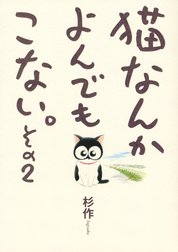 猫なんか
よんでも
こない。その2
杉作